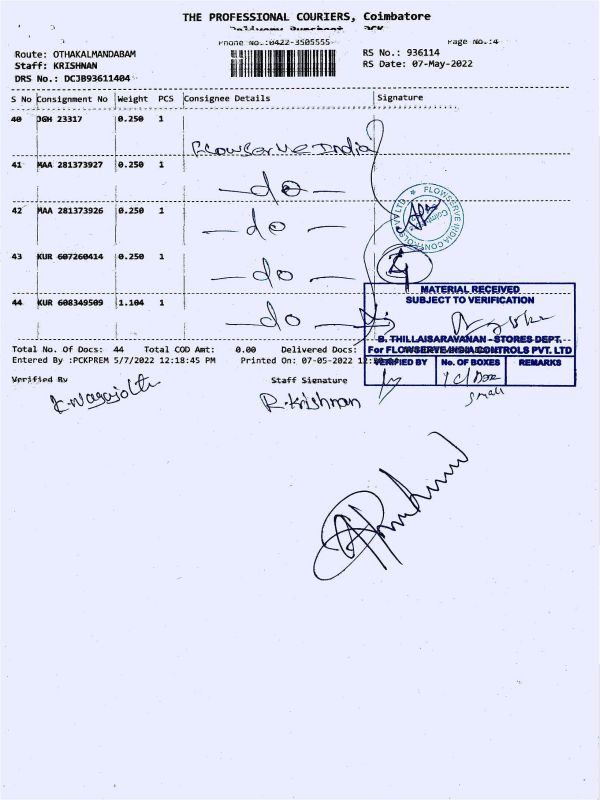 THE PROFESSIONAL COURIERS, Coimbatore
Delivery Runsheet PCK
Phone No.:0422-3505555 Page No.:4
Route: OTHAKALMANDABAM RS No.: 936114
Staff: KRISHNAN RS Date: 07-May-2022
DRS No.: DCJB93611404
S No Consignment No Weight PCS Consignee Details Signature
40 JGH 23317 0.250 1
Flowserve India
41 MAA 281373927 0.250 1
-do-
42 MAA 281373926 0.250 1
-do-
43 KUR 607260414 0.250 1
-do-
44 KUR 608349509 1.104 1
-do-
FLOWSERVE INDIA CONTROLS PVT LTD
Coimbatore
MATERIAL RECEIVED
SUBJECT TO VERIFICATION
B. THILLAISARAVANAN - STORES DEPT.
For FLOWSERVE INDIA CONTROLS PVT. LTD
VERIFIED BY No. OF BOXES REMARKS
small
Total No. Of Docs: 44 Total COD Amt: 0.00 Delivered Docs:
Entered By :PCKPREM 5/7/2022 12:18:45 PM Printed On: 07-05-2022
Verified By Staff Signature
R. Krishnan